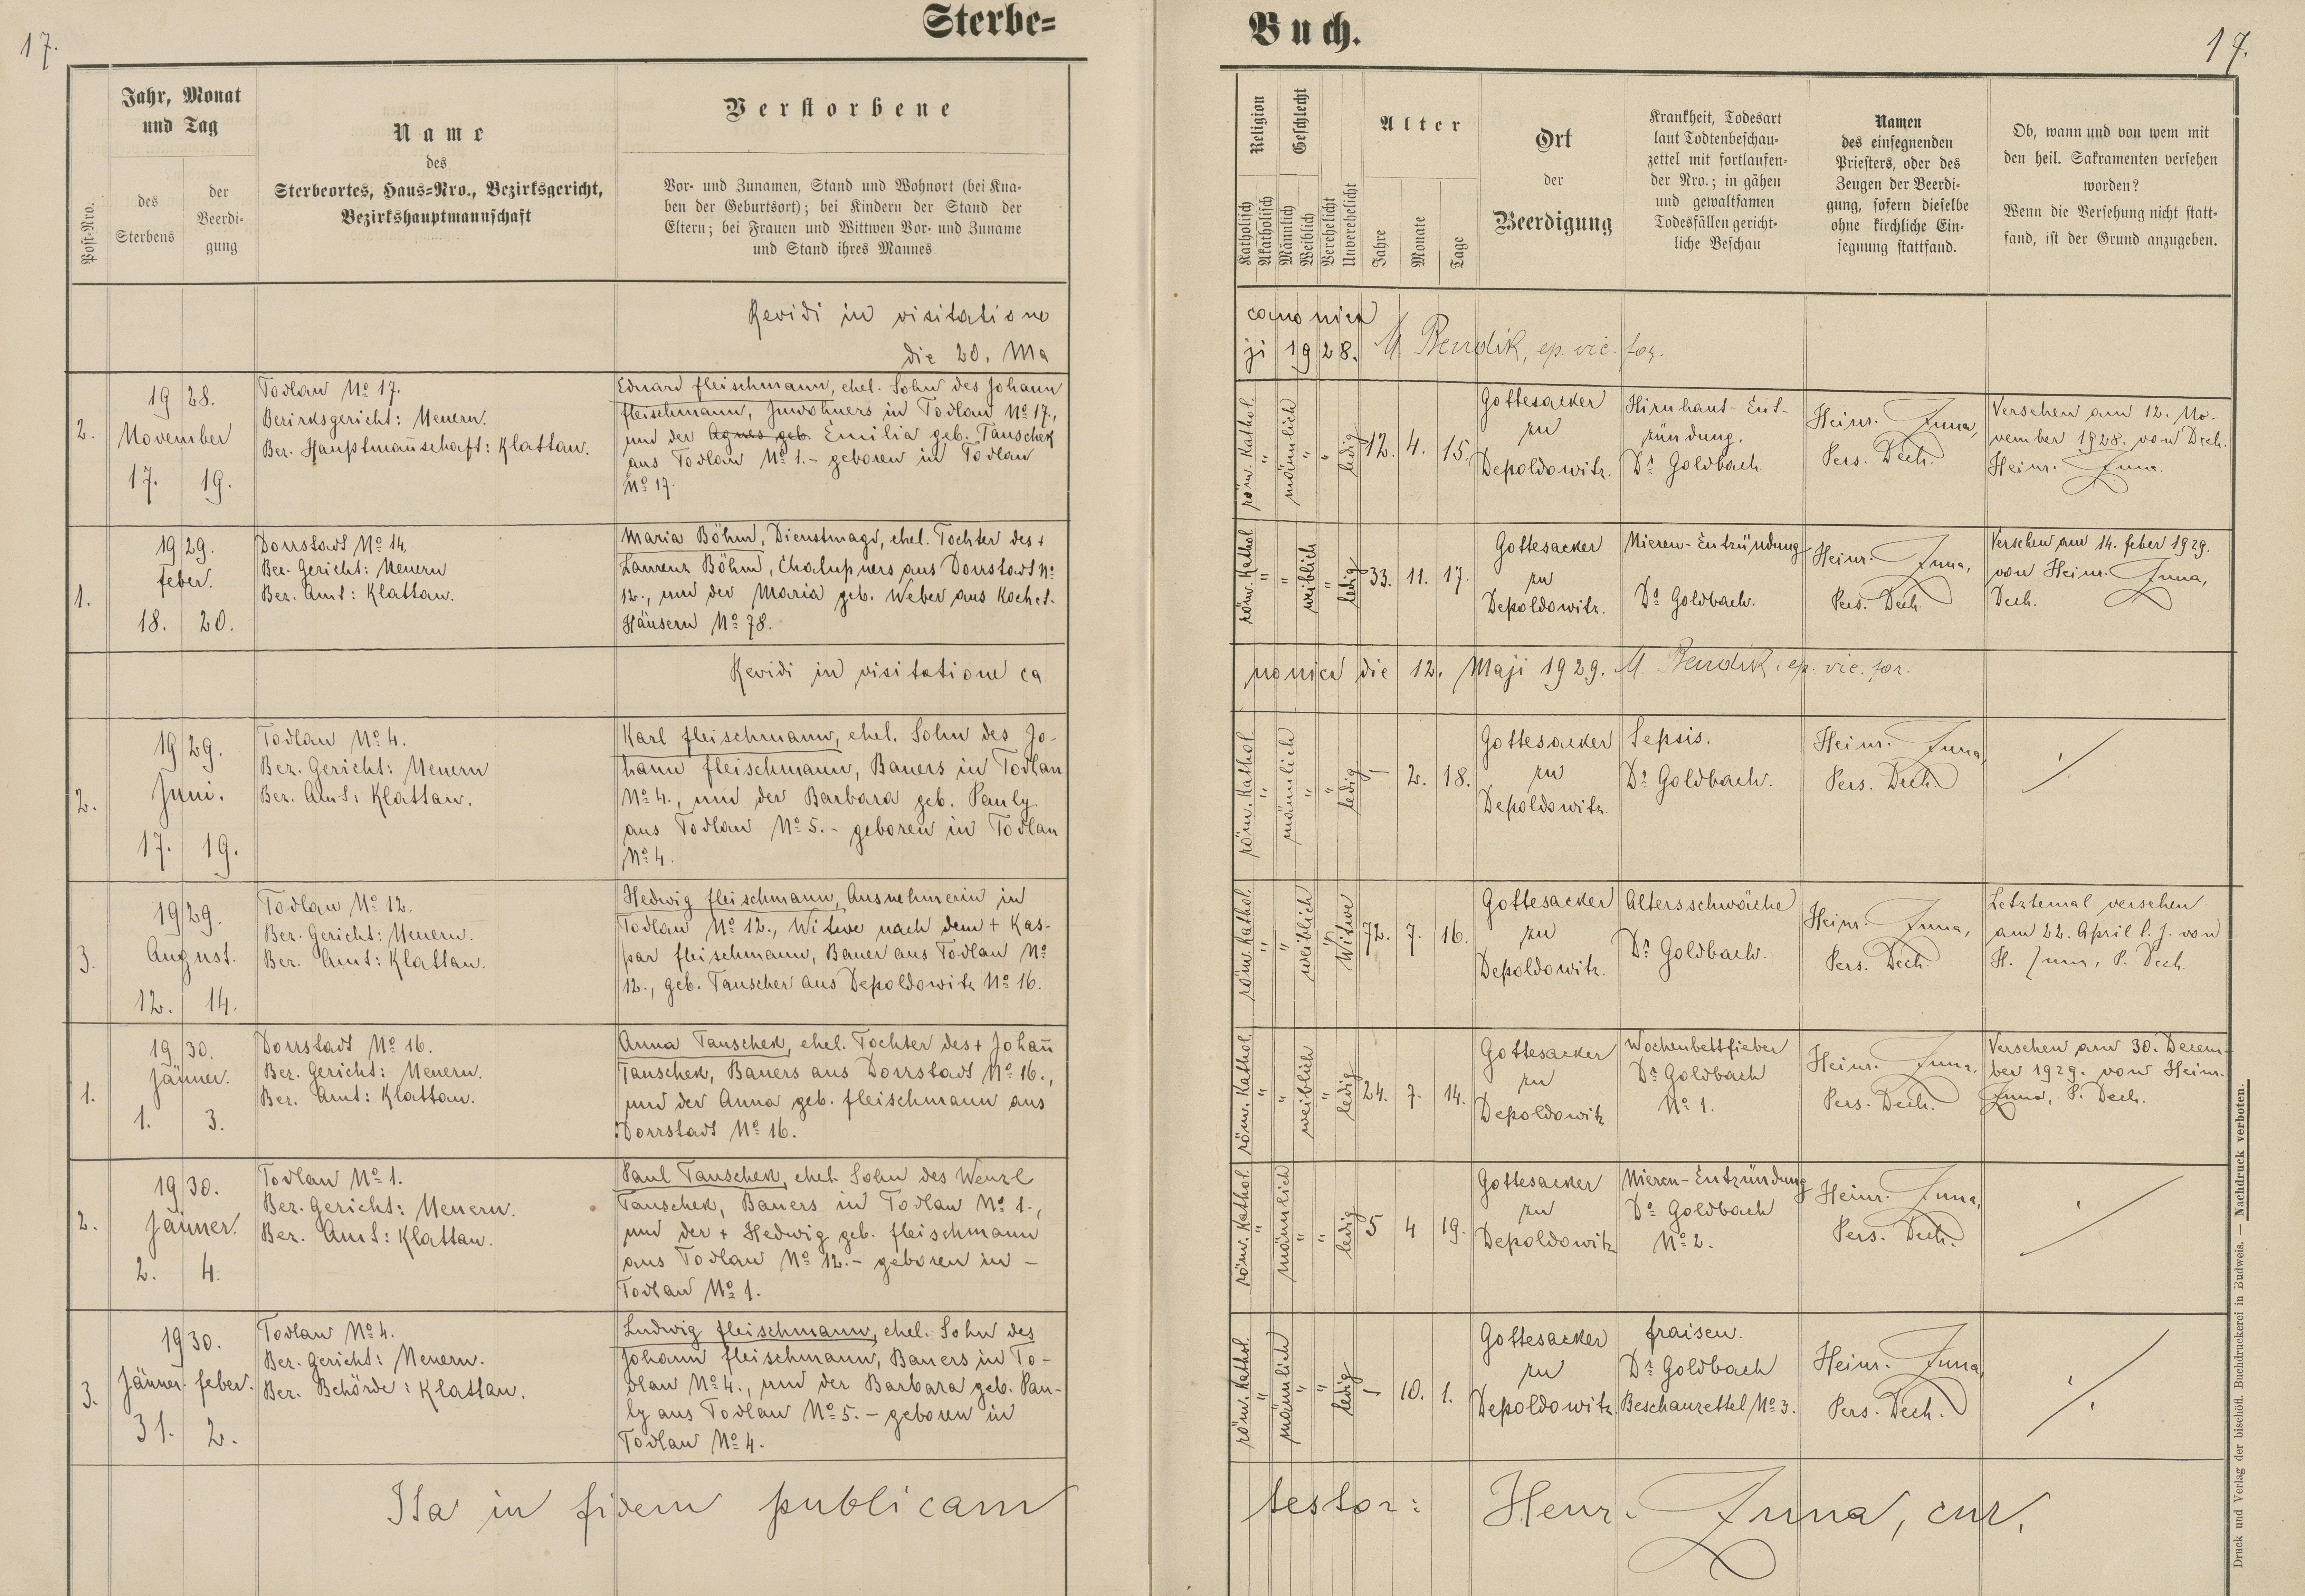 17.
Sterbe=
Buch.
17.
Post-Nro.
Jahr, Monat
und Tag
des
Sterbens
der
Beerdi-
gung
Name
des
Sterbeortes, Haus=Nro., Bezirksgericht,
Bezirkshauptmannschaft
Verstorbene
Vor- und Zunamen, Stand und Wohnort (bei Kna-
ben der Geburtsort); bei Kindern der Stand der
Eltern; bei Frauen und Wittwen Vor- und Zuname
und Stand ihres Mannes
Religion
Katholisch
Akatholisch
Geschlecht
Männlich
Weiblich
Verehelicht
Unverehelicht
Alter
Jahre
Monate
Tage
Ort
der
Beerdigung
Krankheit, Todesart
laut Todtenbeschau-
zettel mit fortlaufen-
der Nro.; in gähen
und gewaltsamen
Todesfällen gericht-
liche Beschau
Namen
des einsegnenden
Priesters, oder des
Zeugen der Beerdi-
gung, sofern dieselbe
ohne kirchliche Ein-
segnung stattfand.
Ob, wann und von wem mit
den heil. Sakramenten versehen
worden?
Wenn die Versehung nicht statt-
fand, ist der Grund anzugeben.
Revidi in visitatione canonica
die 20. Maji 1928. M. Bendik, ep. vic. for.
2.
19 28.
November
17. 19.
Todlau No 17.
Bezirksgericht: Neuern.
Bez. Hauptmannschaft: Klattau.
Eduard Fleischmann, ehel. Sohn des Johann
Fleischmann, Inwohners in Todlau No 17.,
und der Agnes geb. Emilia geb. Tauschek
aus Todlau No 1.- geboren in Todlau
No 17.
röm. kathol.
"
männlich
"
"
ledig
12. 4. 15.
Gottesacker
zu
Depoldowitz.
Hirnhaut-Ent-
zündung.
Dr Goldbach
Heinr. Juna,
Pers. Dech.
Versehen am 12. No-
vember 1928. von Dech.
Heinr. Juna.
1.
19 29.
Feber.
18. 20.
Dorrstadt No 14.
Bez. Gericht: Neuern
Bez. Amt: Klattau.
Maria Böhm, Dienstmagd, ehel. Tochter des +
Laurenz Böhm, Chalupners aus Dorrstadt No
12., und der Maria geb. Weber aus Kochet-
Häusern No 78.
röm. kathol.
"
"
weiblich
"
ledig
33. 11. 17.
Gottesacker
zu
Depoldowitz.
Nieren-Entzündung
Dr Goldbach.
Heinr. Juna,
Pers. Dech.
Versehen am 14. Feber 1929.
von Heinr. Juna,
Dech.
Revidi in visitatione canonica die 12. Maji 1929. M. Bendik, ep. vic. for.
2.
19 29.
Juni.
17. 19.
Todlau No 4.
Bez. Gericht: Neuern
Bez. Amt: Klattau.
Karl Fleischmann, ehel. Sohn des Jo-
hann Fleischmann, Bauers in Todlau
No 4., und der Barbara geb. Pauly
aus Todlau No 5.- geboren in Todlau
No 4.
röm. kathol.
"
männlich
"
"
ledig
/ 2. 18.
Gottesacker
zu
Depoldowitz
Sepsis.
Dr Goldbach.
Heinr. Juna,
Pers. Dech.
3.
19 29.
August.
12. 14.
Todlau No 12.
Bez. Gericht: Neuern.
Bez. Amt: Klattau.
Hedwig Fleischmann, Ausnehmerin in
Todlau No 12., Witwe nach dem + Kas-
par Fleischmann, Bauer aus Todlau No
12., geb. Tauscher aus Depoldowitz No 16.
röm. kathol.
"
"
weiblich
"
Witwe
72. 7. 16.
Gottesacker
zu
Depoldowitz.
Altersschwäche
Dr Goldbach.
Heinr. Juna,
Pers. Dech.
Letztemal versehen
am 22. April l. J. von
H. Juna, P. Dech
1.
19 30.
Jänner.
1. 3.
Dorrstadt No 16.
Bez. Gericht: Neuern.
Bez. Amt: Klattau.
Anna Tauschek, ehel. Tochter des + Johann
Tauschek, Bauers aus Dorrstadt No 16.,
und der Anna geb. Fleischmann aus
Dorrstadt No 16.
röm. kathol.
"
"
weiblich
"
ledig
24. 7. 14.
Gottesacker
zu
Depoldowitz
Wochenbettfieber
Dr Goldbach
No 1.
Heinr. Juna,
Pers. Dech.
Versehen am 30. Dezem-
ber 1929. von Heinr.
Juna, P. Dech.
2.
19 30.
Jänner.
2. 4.
Todlau No 1.
Bez. Gericht: Neuern.
Bez. Amt: Klattau.
Paul Tauschek, ehel. Sohn des Wenzl
Tauschek, Bauers in Todlau No 1.,
und der + Hedwig geb. Fleischmann
aus Todlau No 12.- geboren in -
Todlau No 1.
röm. kathol.
"
männlich
"
"
ledig
5 4 19.
Gottesacker
zu
Depoldowitz
Nieren-Entzündung
Dr Goldbach
No 2.
Heinr. Juna,
Pers. Dech.
3.
19 30.
Jänner. Feber.
31. 2.
Todlau No 4.
Bez. Gericht: Neuern.
Bez. Behörde: Klattau.
Ludwig Fleischmann, ehel. Sohn des
Johann Fleischmann, Bauers in To-
dlau No 4., und der Barbara geb. Pau-
ly aus Todlau No 5. - geboren in
Todlau No 4.
röm. kathol.
"
männlich
"
"
ledig
/ 10. 1.
Gottesacker
zu
Depoldowitz.
Fraisen.
Dr Goldbach
Beschauzettel No 3.
Heinr. Juna,
Pers. Dech.
Ita in fidem publicam testor: Henr. Juna, cur.
Druck und Verlag der bischöfl. Buchdruckerei in Budweis. — Nachdruck verboten.